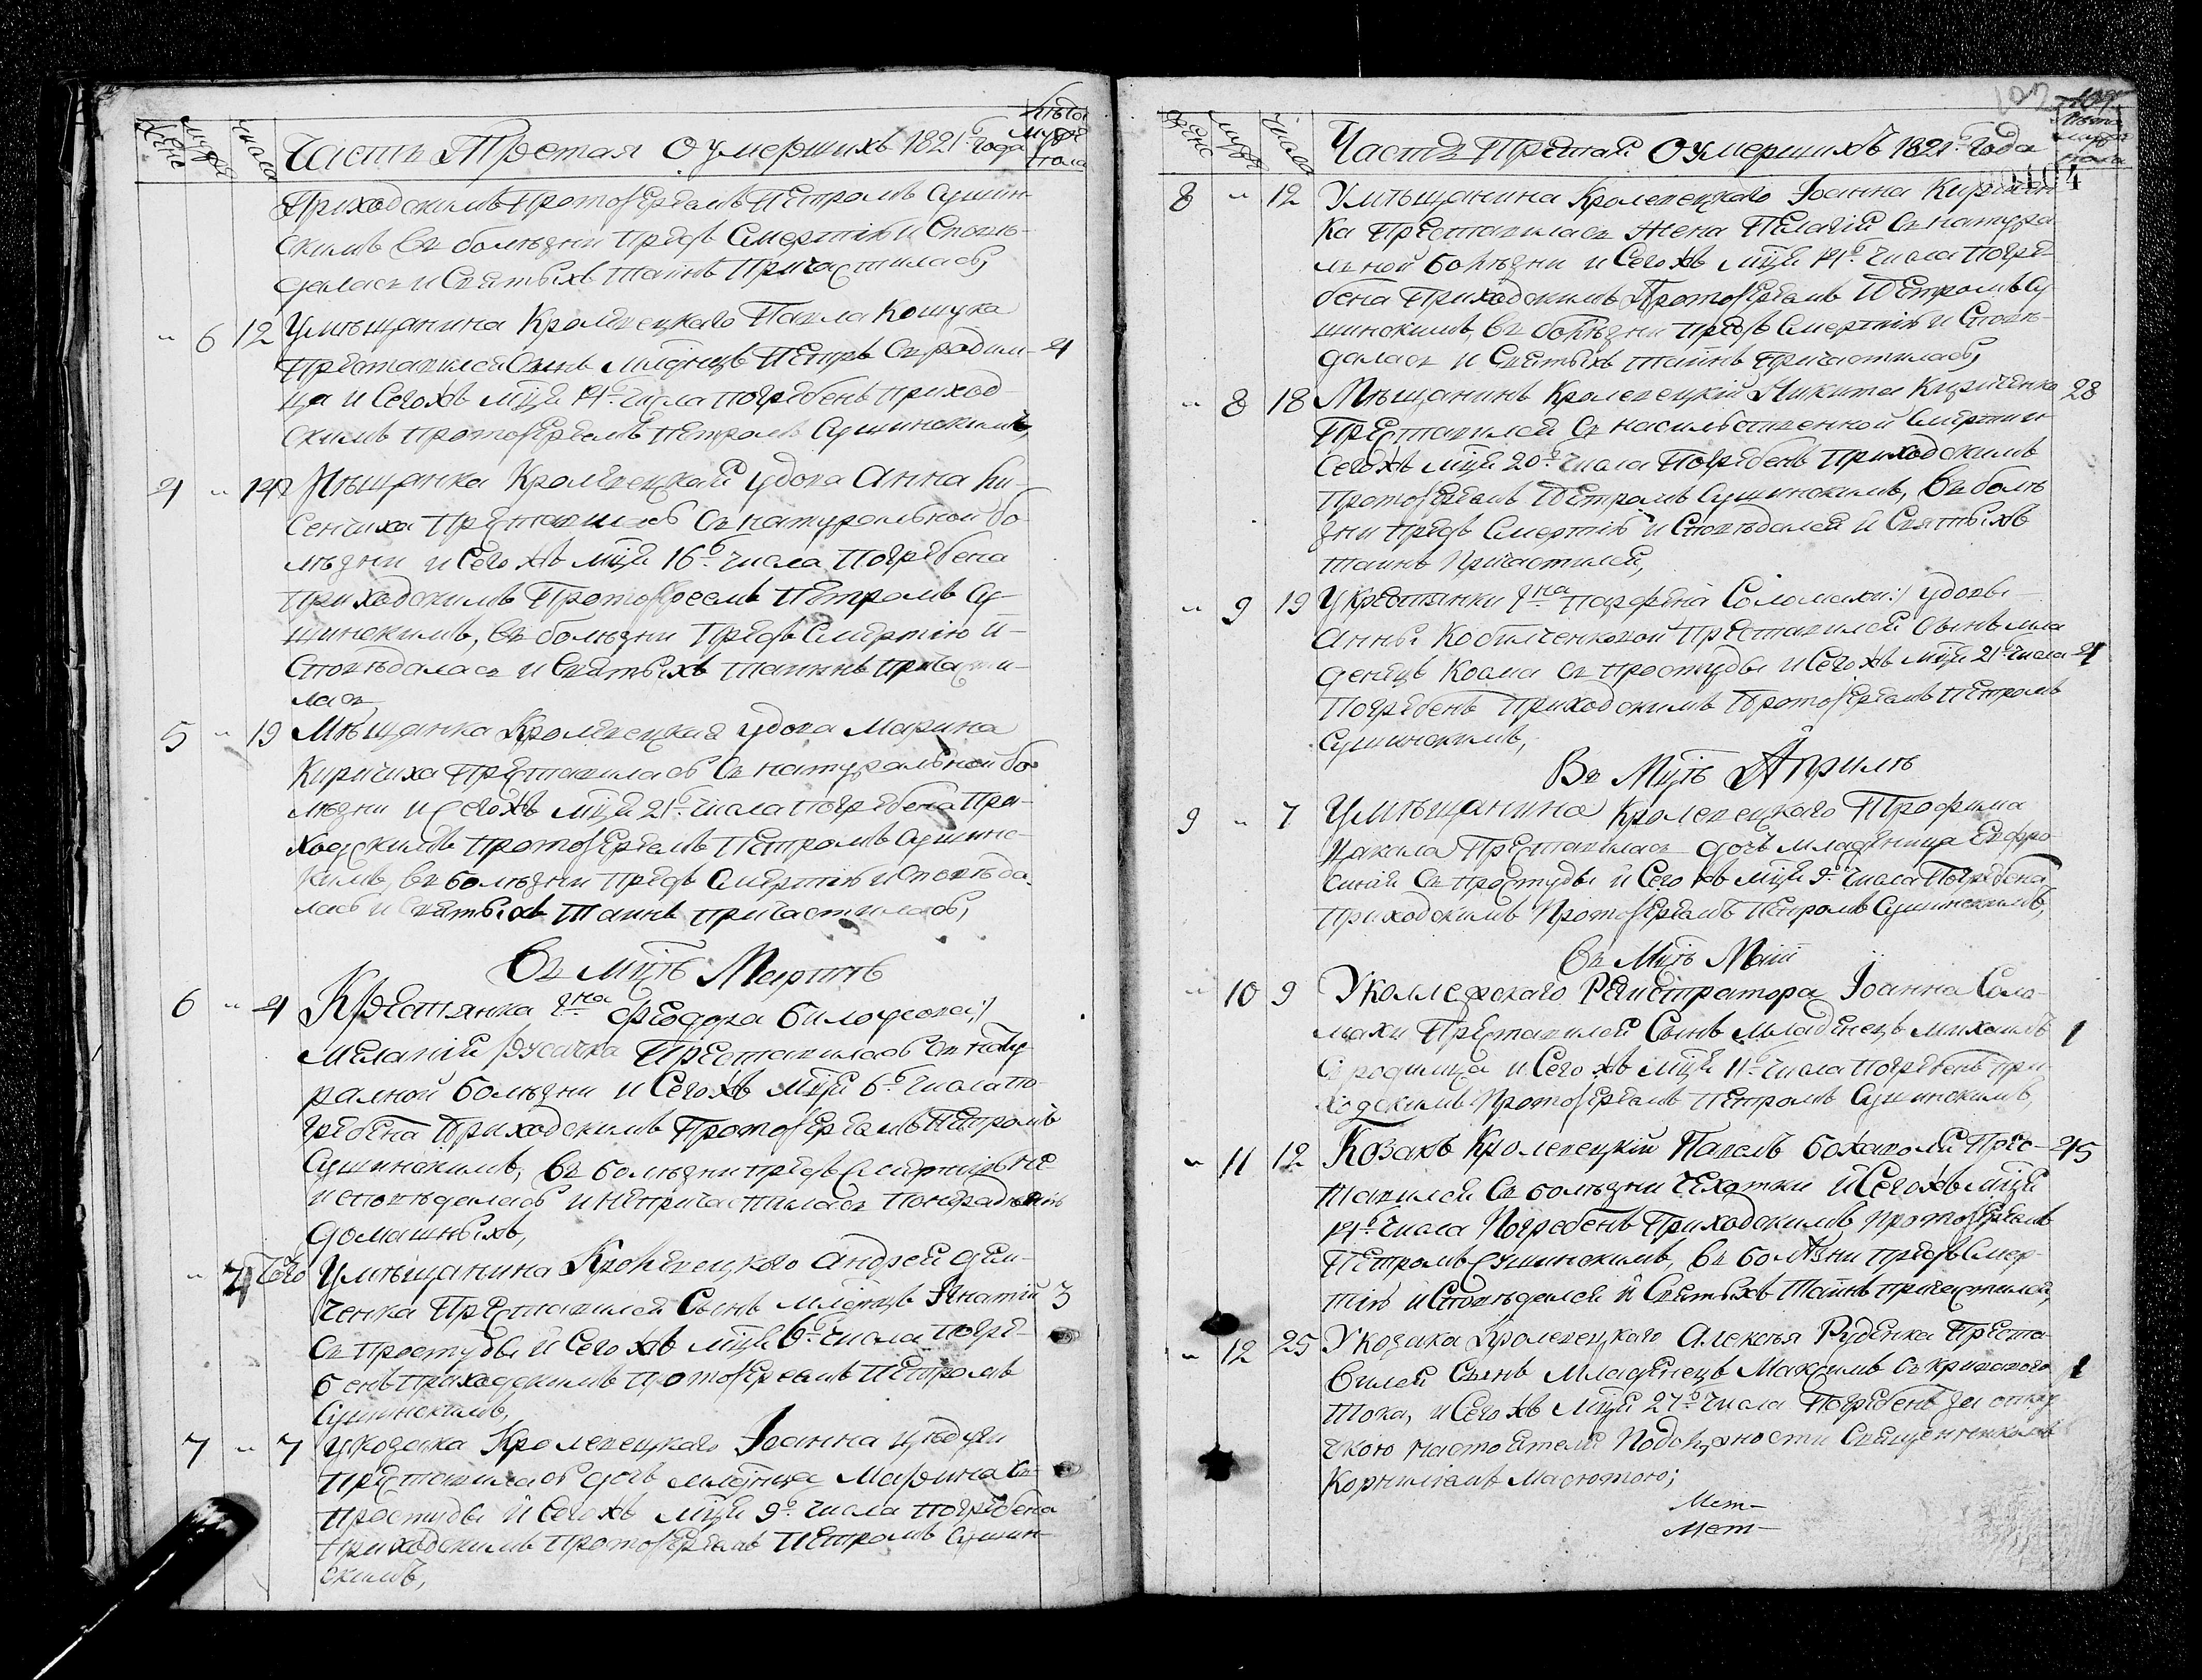 женс
мужес
числа
Часть Третая О умершихъ 1821го Года
лѣта
мужес
пола
Приходскимъ Протоіереемъ Петромъ Сушин-
скимъ въ болѣзни предъ Смертію и Исповѣ-
далась и Святыхъ таинъ Причастилась,
" 6 12 У мѣщанина Кролевецкаго Павла Кошука
Преставился Сынъ младнцъ Петръ Съ родим- 4
ца и Сегожъ мця 14го числа погребенъ приход
скимъ протоіереемъ Петромъ Сушинскимъ,
4 " 14 Мѣщанка Кролевецкая удова Анна Ки-
сенчиха Преставилась Съ натуральной бо-
лѣзни и Сего жъ мця 16го числа Погребена
приходскимъ Протоіереемъ Петромъ Су-
шинскимъ, въ болѣзни предъ Смертію и-
Сповѣдалась и Святыхъ таинъ причасти-
лась
5 " 19 Мѣщанка Кролевецкая удова Марина
Киричиха Преставилась Съ натуральной бо-
лѣзни и Сегожъ мця 21го числа погребена При-
ходскимъ протоіереемъ Петромъ Сушинс-
кимъ, въ болѣзни предъ Смертію и Сповѣда-
лась и Святыхъ Таинъ причастилась,
Въ мцѣ Мартѣ
6 " 4 Крестянка гна Феодора Билоусова:/
Мелания Преставилась Съ нату
ралной болѣзни и Сегожъ мця 6го числа по-
гребена Приходскимъ Протоіереемъ Петромъ
Сушинскимъ, въ болѣзни предъ Смертію не
исповѣдалась и непричастилась по нерадѣнію
домашныхъ,
" 7 того У мѣщанина Кролевецкого Андрея Дем-
ченка Преставился Сынъ младнцъ Игнатій 3
Съ простуды и Сего жъ мця 6го числа погре-
бенъ приходскимъ протоіереемъ Петромъ
Сушинскимъ,
7 " 7 У козака Кролевецкаго Іоанна
преставилась дочь младнца Марина Съ
простуды и Сегожъ мця 9го числа погребена
приходскимъ протоіереемъ Петромъ Сушин-
скимъ,
женс
мужес
числа
Часть Третая О Умершихъ 1821го Года
лѣта
мужес
пола
104
8 " 12 У мѣщанина Кролевецкаго Іоанна Киричен
ка Преставилась жена Пелагія Съ натура
лной болѣзни и Сегожъ мця 14го числа Погре
бена Приходскимъ Протоіереемъ Петромъ Су
шинскимъ, въ болѣзни предъ Смертію и Сповѣ-
далась и Святыхъ таинъ Причастилась,
" 8 18 Мѣщанинъ Кролевецкій Никита Кириченко 28
Преставился Съ насильственной Смерти и
Сегожъ мця 20го числа Погребенъ Приходскимъ
Протоіереемъ Петромъ Сушинскимъ, въ болѣ
зни предъ Смертію и Сповѣдался и Святыхъ
таинъ Причастился,
" 9 19 У крестянки гна Парфена Соломахи:/ удовы
Анны Кобилченковой Преставился Сынъ мла
денецъ Косма Съ простуды и Сего жъ мця 21го числа 4
Погребенъ Приходскимъ Протоіереемъ Петромъ
Сушинскимъ,
Въ Мцѣ Априлѣ
9 " 7 У мѣщанина Кролевецкаго Трофима
Цакила Преставилась дочъ младеница Евфро
синия Съ простуды и Сего жъ мця 9го числа Погребена
Приходскимъ Протоіереемъ Петромъ Сушинскимъ,
Въ Мцѣ Маіи
" 10 9 У коллежскаго Регистратора Іоанна Соло-
махи Преставился Сынъ младенецъ Михаилъ 1
С родимца и Сего жъ мця 11го числа Погребенъ при
ходскимъ Протоіереемъ Петромъ Сушинскимъ,
" 11 12 Козакъ Кролевецкій Павелъ Прес- 45
тавился Съ болѣзни чехотки и Сегожъ мця
14го числа Погребенъ Приходскимъ Протоіереемъ
Петромъ Сушинскимъ, въ болѣзни предъ Смер-
тію и Сповѣдался и Святыхъ Таинъ причастился,
" 12 25 У козака Кролевецкаго Алексѣя Руденка Преста
вился Сынъ младенецъ Максимъ Съ кривавого 1
тока, и Сего жъ мця 27го числа Погребенъ за отлу
чкою настоятеля по должности Священникомъ
Корниліемъ